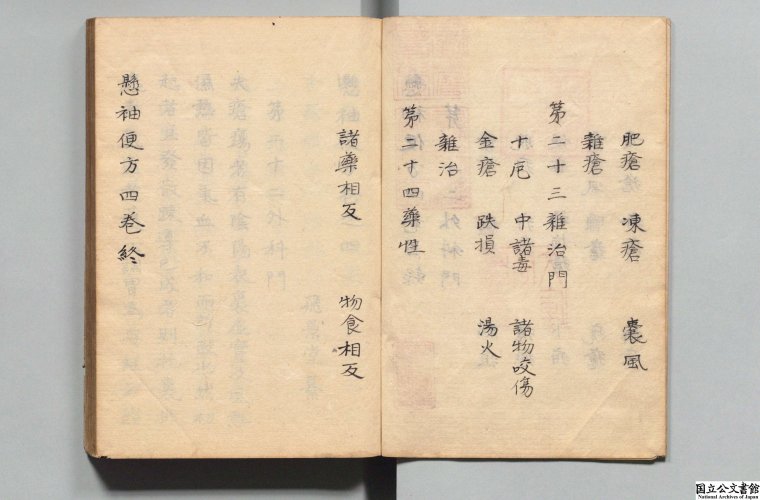 肥瘡 凍瘡 囊風
雜瘡
第二十三雜治門
十厄 中諸毒 諸物咬傷
金瘡 跌損 湯火
雜治
第二十四藥性
諸藥相反 物食相反
懸袖便方四巻終
国立公文書館
National Archives of Japan